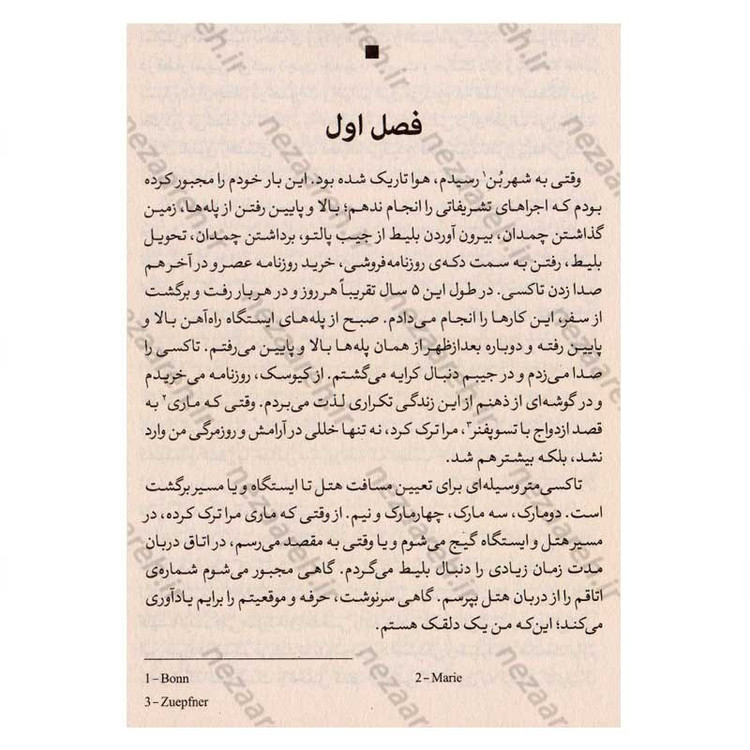 فصل اول
وقتی به شهر بُن¹ رسیدم، هوا تاریک شده بود. این بار خودم را مجبور کرده
بودم که اجراهای تشریفاتی را انجام ندهم؛ بالا و پایین رفتن از پله‌ها، زمین
گذاشتن چمدان، بیرون آوردن بلیط از جیب پالتو، برداشتن چمدان، تحویل
بلیط، رفتن به سمت دکه‌ی روزنامه‌فروشی، خرید روزنامه عصر و در آخر هم
صدا زدن تاکسی. در طول این ۵ سال تقریباً هر روز و در هر بار رفت و برگشت
از سفر، این کارها را انجام می‌دادم. صبح از پله‌های ایستگاه راه‌آهن بالا و
پایین رفته و دوباره بعدازظهر از همان پله‌ها بالا و پایین می‌رفتم. تاکسی را
صدا می‌زدم و در جیبم دنبال کرایه می‌گشتم. از کیوسک، روزنامه می‌خریدم
و در گوشه‌ای از ذهنم از این زندگی تکراری لذت می‌بردم. وقتی که ماری² به
قصد ازدواج با تسوپفنر³، مرا ترک کرد، نه تنها خللی در آرامش و روزمرگی من وارد
نشد، بلکه بیشتر هم شد.
تاکسی‌متر وسیله‌ای برای تعیین مسافت هتل تا ایستگاه و یا مسیر برگشت
است. دومارک، سه مارک، چهارمارک و نیم. از وقتی که ماری مرا ترک کرده، در
مسیر هتل و ایستگاه گیج می‌شوم و یا وقتی به مقصد می‌رسم، در اتاق دربان
مدت زمان زیادی را دنبال بلیط می‌گردم. گاهی مجبور می‌شوم شماره‌ی
اتاقم را از دربان هتل بپرسم. گاهی سرنوشت، حرفه و موقعیتم را برایم یادآوری
می‌کند؛ این‌که من یک دلقک هستم.
1 – Bonn 2 – Marie
3 – Zuepfner
nezaareh.ir